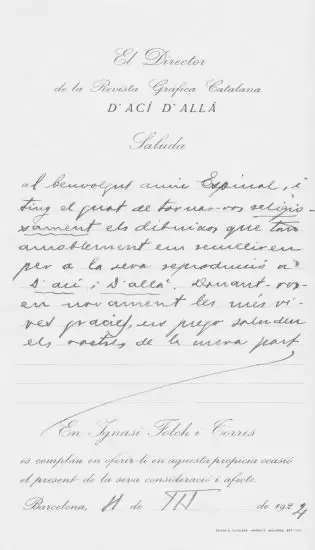 El Director
de la Revista Gráfica Catalana
D'ACÍ D'ALLÀ
Saluda
al benvolgut amic Espinal, i
tinc el gust de tornar-vos religio-
sament els dibuixos que tan
amablement em
per a la seva reproducció a
"D'ací i D'allà". Donant-vos-
en novament les més vi-
ves gràcies, us prego saludeu
els vostres de la meva part
En Ignasi Folch i Torres
es complau en oferir-li en aquesta propicia ocasió
el present de la seva consideració i afecte.
Barcelona, 11 de III de 1924